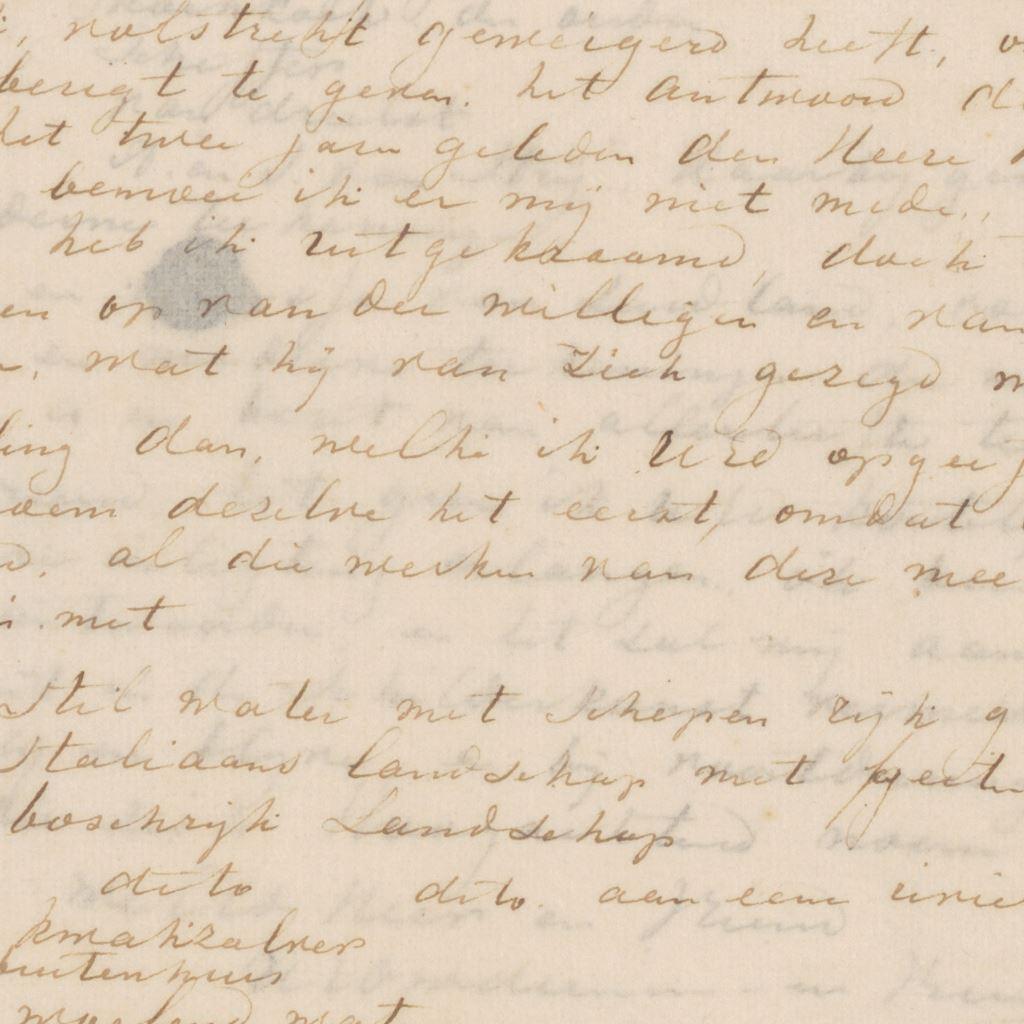 volstrekt geweigerd heeft,
berigt te geven. het antwoord
twee jaren geleden den Heere
bemoei ik er mij niet mede.,
heb ik uitgekraamd, doch
en op van der willigen en van
wat hij van zich gezegd
ling dan, welke ik UEd opgee
noem dezelve het eerst, omdat
al die werken van deze mee
met
Stil water met schepen rijk g
Italiaans landschap met geite
boschrijk Landschap
dito dito. aan een rivie
kwakzalver
buitenhuis